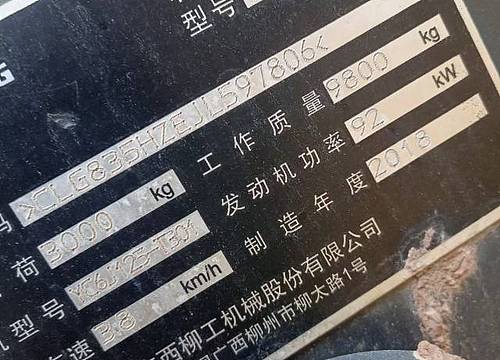 型号
码 >CLG835HZEJL597806<
荷 3000 kg 工作质量 9800 kg
机型号 YC6J125-T301 发动机功率 92 kW
速 38 km/h 制造年度 2018
西柳工机械股份有限公司
广西柳州市柳太路1号